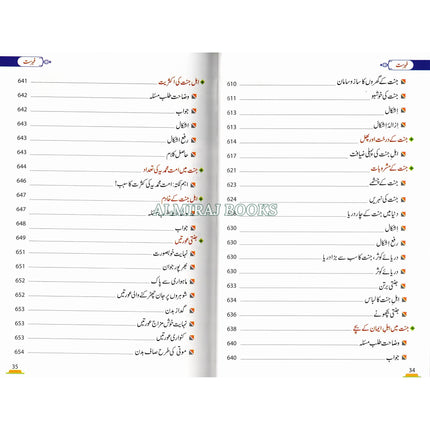 فہرست
جنت کے گھروں کا ساز و سامان 610
جنت کی خوشبو 611
اشکال 613
ازالۂ اشکال 613
جنت کے درخت اور پھل 614
اہل جنت کی پہلی ضیافت 617
جنت کے مشروبات 621
جنت کے چشمے 621
جنت کی نہریں 624
دنیا میں جنت کے چار دریا 624
اشکال 630
رفع اشکال 630
دریائے کوثر، جنت کا سب سے بڑا دریا 630
دریائے کوثر 630
جنتی برتن 634
اہل جنت کا لباس 634
جنتی بچھونے 637
جنت میں اہل ایمان کے بچے 638
وضاحت طلب مسئلہ 640
جواب 640
34
فہرست
اہل جنت کی اکثریت 641
وضاحت طلب مسئلہ 642
جواب 642
اشکال 643
رفع اشکال 643
حاصل کلام 643
جنت میں امت محمدیہ کی تعداد 644
اہم نکتہ: امت محمدیہ کی کثرت کا سبب؟
اہل جنت کے خادم
ALMIRAJ BOOKS
جواب 648
جنتی عورتیں 649
نہایت خوبصورت 650
بھرپور جوان 651
ماہواری سے پاک 651
شوہروں پر جان چھڑکنے والی عورتیں 652
گداز بدن 653
نہایت خوش مزاج عورتیں 653
کنواری عورتیں 653
موتی کی طرح صاف بدن 654
35